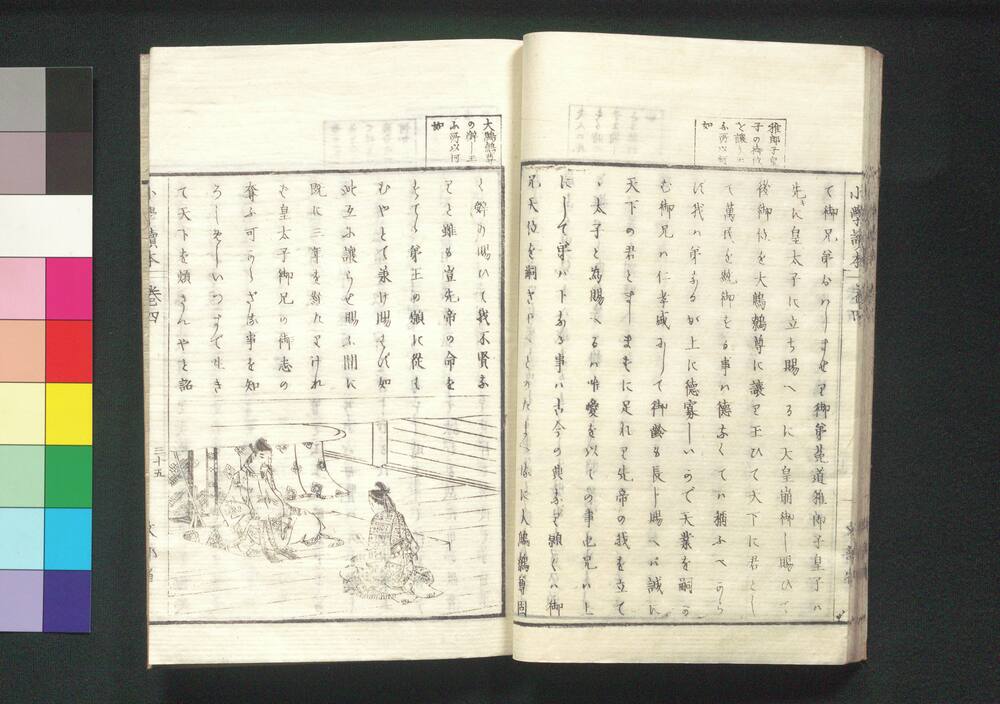 稚郎子皇
子の御位
を譲り玉
ふ所以何
如
て御兄弟おはしませり御弟菟道稚郎子皇子ハ
先に皇太子に立ち賜へるに天皇崩御し賜ひて
後御位を大鷦鷯尊に譲り玉ひて天下に君とし
て萬民を統御をる事ハ徳なくてハ猶ふへからに
に我ハ弟なるが上に徳寡しいので天業を嗣
む御兄ハ仁孝盛にして御齢も長し賜へバ誠に
天下の君とましまをに足れり先帝の我を立て
太子と為賜へるハ唯愛を以ての事也兄ハ上
にして弟ハ下なる事ハ古今の典なり願くハ御
兄天位を嗣
に大鷦鷯尊固
小學讀本 巻四
大鷦鷯尊
の辭し玉
ふ所以何
如
く辭み賜ひて我不賢な
りと雖も豈先帝の命を
すてゝ弟王の願に従は
むやとて兼け賜はぬ如
此互に讓らせ賜ふ間に
既に三年を經たりけれ
ば皇太子御兄の御志の
奪ふ可からざる事を知
ろしめしいつまで生き
て天下を煩さんやと詔
小學讀本 巻四
三十五
文部省